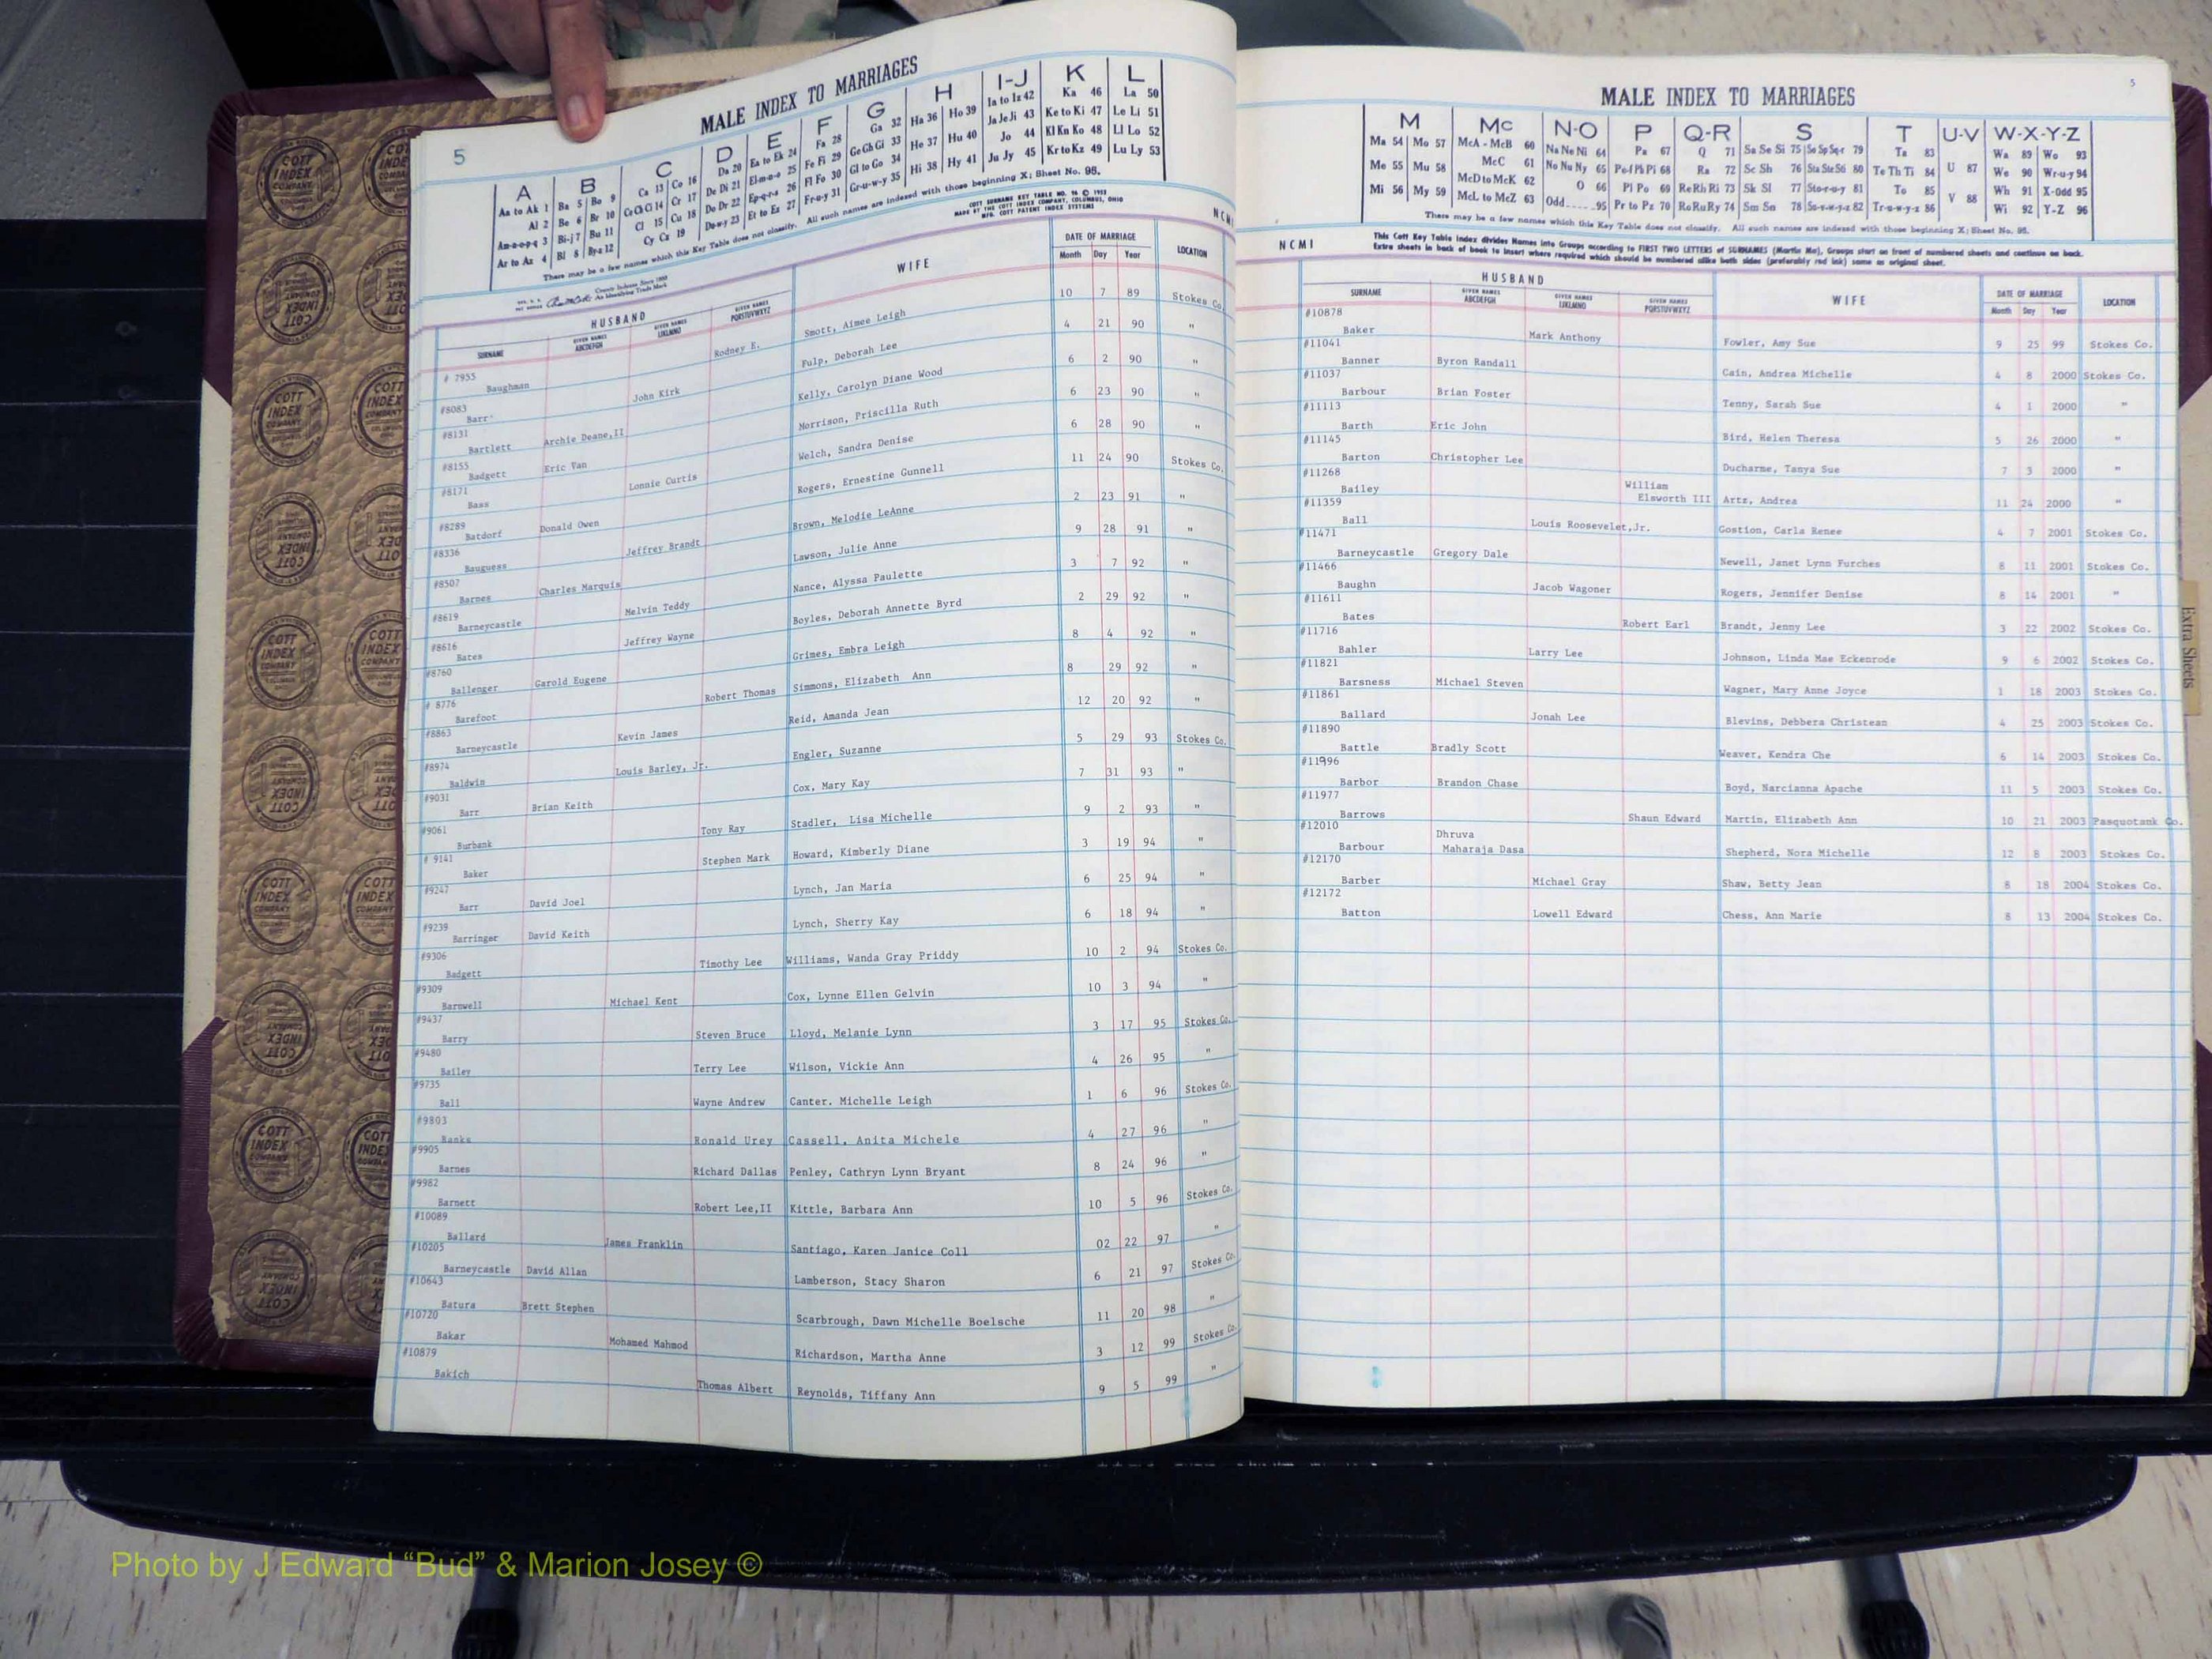 MALE INDEX TO MARRIAGES
5
A B C D E F G H I-J K L
Aa to Ak 1 Ba 5 Bo 9 Ca 13 Co 16 Da 20 Ea to Ek 24 Fa 28 Ga 32 Ha 36 Ho 39 Ia to Iz 42 Ka 46 La 50
Al 2 Be 6 Br 10 Ce Ch Ci 14 Cr 17 De Di 21 El-m-n-o 25 Fe Fi 29 Ge Gh Gi 33 He 37 Hu 40 Ja Je Ji 43 Ke to Ki 47 Le Li 51
Am-n-o-p-q 3 Bi-j 7 Bu 11 Cl 15 Cu 18 Do Dr 22 Ep-q-r-s 26 Fl Fo 30 Gl to Go 34 Hi 38 Hy 41 Jo 44 Kl Kn Ko 48 Ll Lo 52
Ar to Az 4 Bl 8 By-z 12 Cy Cz 19 Du-w-y 23 Et to Ez 27 Fr-u-y 31 Gr-u-w-y 35 Ju Jy 45 Kr to Kz 49 Lu Ly 53
There may be a few names which this Key Table does not classify. All such names are indexed with those beginning X; Sheet No. 95.
COTT SURNAME KEY TABLE NO. 96 © 1952
MADE BY THE COTT INDEX COMPANY, COLUMBUS, OHIO
MFG. COTT PATENT INDEX SYSTEMS
HUSBAND WIFE DATE OF MARRIAGE LOCATION
SURNAME GIVEN NAMES ABCDEFGH GIVEN NAMES IJKLMNO GIVEN NAMES PQRSTUVWXYZ Month Day Year
# 7955 Baughman Rodney E. Smott, Aimee Leigh 10 7 89 Stokes Co.
#8083 Barr John Kirk Fulp, Deborah Lee 4 21 90 "
#8131 Bartlett Archie Deane,II Kelly, Carolyn Diane Wood 6 2 90 "
#8155 Badgett Eric Van Morrison, Priscilla Ruth 6 23 90 "
#8171 Bass Lonnie Curtis Welch, Sandra Denise 6 28 90 "
#8289 Batdorf Donald Owen Rogers, Ernestine Gunnell 11 24 90 Stokes Co.
#8336 Bauguess Jeffrey Brandt Brown, Melodie LeAnne 2 23 91 "
#8507 Barnes Charles Marquis Lawson, Julie Anne 9 28 91 "
#8619 Barneycastle Melvin Teddy Nance, Alyssa Paulette 3 7 92 "
#8616 Bates Jeffrey Wayne Boyles, Deborah Annette Byrd 2 29 92 "
#8760 Ballenger Garold Eugene Grimes, Embra Leigh 8 4 92 "
# 8776 Barefoot Robert Thomas Simmons, Elizabeth Ann 8 29 92 "
#8863 Barneycastle Kevin James Reid, Amanda Jean 12 20 92 "
#8974 Baldwin Louis Barley, Jr. Engler, Suzanne 5 29 93 Stokes Co.
#9031 Barr Brian Keith Cox, Mary Kay 7 31 93 "
#9061 Burbank Tony Ray Stadler, Lisa Michelle 9 2 93 "
# 9141 Baker Stephen Mark Howard, Kimberly Diane 3 19 94 "
#9247 Barr David Joel Lynch, Jan Maria 6 25 94 "
#9239 Barringer David Keith Lynch, Sherry Kay 6 18 94 "
#9306 Badgett Timothy Lee Williams, Wanda Gray Priddy 10 2 94 Stokes Co.
#9309 Barnwell Michael Kent Cox, Lynne Ellen Gelvin 10 3 94 "
#9437 Barry Steven Bruce Lloyd, Melanie Lynn 3 17 95 Stokes Co.
#9480 Bailey Terry Lee Wilson, Vickie Ann 4 26 95 "
#9735 Ball Wayne Andrew Canter. Michelle Leigh 1 6 96 Stokes Co.
#9803 Banks Ronald Urey Cassell, Anita Michele 4 27 96 "
#9905 Barnes Richard Dallas Penley, Cathryn Lynn Bryant 8 24 96 "
#9982 Barnett Robert Lee,II Kittle, Barbara Ann 10 5 96 Stokes Co.
#10089 Ballard James Franklin Santiago, Karen Janice Coll 02 22 97 "
#10205 Barneycastle David Allan Lamberson, Stacy Sharon 6 21 97 Stokes Co.
#10643 Batura Brett Stephen Scarbrough, Dawn Michelle Boelsche 11 20 98 "
#10720 Bakar Mohamed Mahmod Richardson, Martha Anne 3 12 99 Stokes Co.
#10879 Bakich Thomas Albert Reynolds, Tiffany Ann 9 5 99 "
5
MALE INDEX TO MARRIAGES
M Mc N-O P Q-R S T U-V W-X-Y-Z
Ma 54 Mo 57 McA - McB 60 Na Ne Ni 64 Pa 67 Q 71 Sa Se Si 75 So Sp Sq-r 79 Ta 83 U 87 Wa 89 Wo 93
Me 55 Mu 58 McC 61 No Nu Ny 65 Pe-f Ph Pi 68 Ra 72 Sc Sh 76 Sta Ste Sti 80 Te Th Ti 84 V 88 We 90 Wr-u-y 94
Mi 56 My 59 McD to McK 62 O 66 Pl Po 69 Re Rh Ri 73 Sk Sl 77 Sto-r-u-y 81 To 85 Wh 91 X-Odd 95
McL to McZ 63 Odd 95 Pr to Pz 70 Ro Ru Ry 74 Sm Sn 78 Su-v-w-y-z 82 Tr-u-w-y-z 86 Wi 92 Y-Z 96
There may be a few names which this Key Table does not classify. All such names are indexed with those beginning X; Sheet No. 95.
NCMI This Cott Key Table Index divides Names into Groups according to FIRST TWO LETTERS of SURNAMES (Martin Ma), Groups start on front of numbered sheets and continue on back.
Extra sheets in back of book to insert where required which should be numbered alike both sides (preferably red ink) same as original sheet.
HUSBAND WIFE DATE OF MARRIAGE LOCATION
SURNAME GIVEN NAMES ABCDEFGH GIVEN NAMES IJKLMNO GIVEN NAMES PQRSTUVWXYZ Month Day Year
#10878 Baker Mark Anthony Fowler, Amy Sue 9 25 99 Stokes Co.
#11041 Banner Byron Randall Cain, Andrea Michelle 4 8 2000 Stokes Co.
#11037 Barbour Brian Foster Tenny, Sarah Sue 4 1 2000 "
#11113 Barth Eric John Bird, Helen Theresa 5 26 2000 "
#11145 Barton Christopher Lee Ducharme, Tanya Sue 7 3 2000 "
#11268 Bailey William Elsworth III Artz, Andrea 11 24 2000 "
#11359 Ball Louis Roosevelet,Jr. Gostion, Carla Renee 4 7 2001 Stokes Co.
#11471 Barneycastle Gregory Dale Newell, Janet Lynn Furches 8 11 2001 Stokes Co.
#11466 Baughn Jacob Wagoner Rogers, Jennifer Denise 8 14 2001 "
#11611 Bates Robert Earl Brandt, Jenny Lee 3 22 2002 Stokes Co.
#11716 Bahler Larry Lee Johnson, Linda Mae Eckenrode 9 6 2002 Stokes Co.
#11821 Barsness Michael Steven Wagner, Mary Anne Joyce 1 18 2003 Stokes Co.
#11861 Ballard Jonah Lee Blevins, Debbera Christean 4 25 2003 Stokes Co.
#11890 Battle Bradly Scott Weaver, Kendra Che 6 14 2003 Stokes Co.
#11996 Barbor Brandon Chase Boyd, Narcianna Apache 11 5 2003 Stokes Co.
#11977 Barrows Shaun Edward Martin, Elizabeth Ann 10 21 2003 Pasquotank Co.
#12010 Barbour Dhruva Maharaja Dasa Shepherd, Nora Michelle 12 8 2003 Stokes Co.
#12170 Barber Michael Gray Shaw, Betty Jean 8 18 2004 Stokes Co.
#12172 Batton Lowell Edward Chess, Ann Marie 8 13 2004 Stokes Co.
Extra Sheets
Photo by J Edward “Bud” & Marion Josey ©